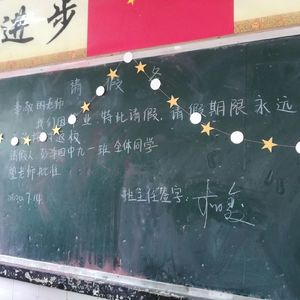 进步
请假条
尊敬的老师
我们因毕业,特此请假,请假期限永远
请假人 四中九一班 全体同学
望老师批准
班主任签字: